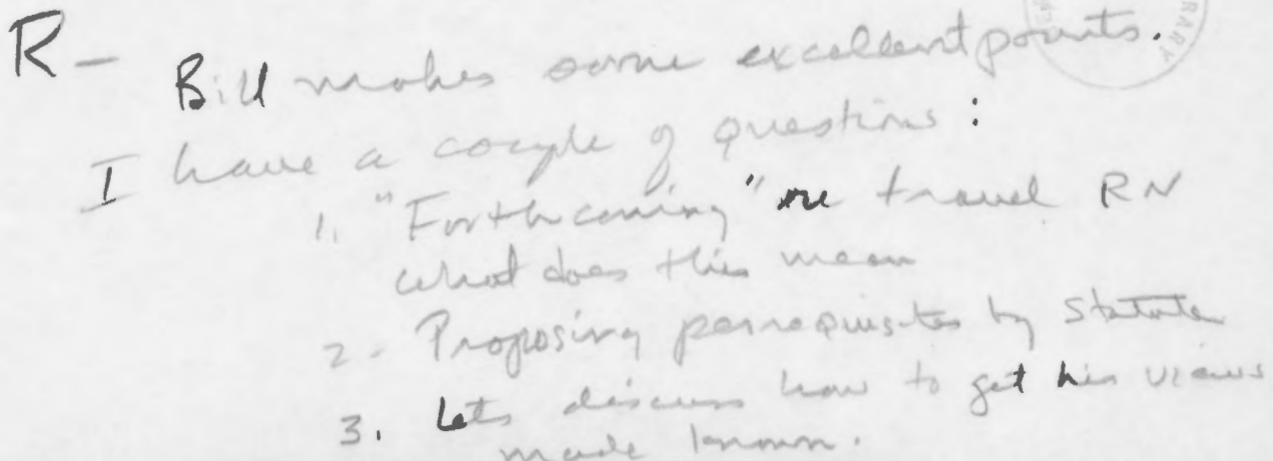 R - Bill makes some excellent points.
I have a couple of questions:
1. "Forthcoming" re travel RN
what does this mean
2. Proposing perrequisites by statute
3. Lets discuss how to get his views
made known.
RARY